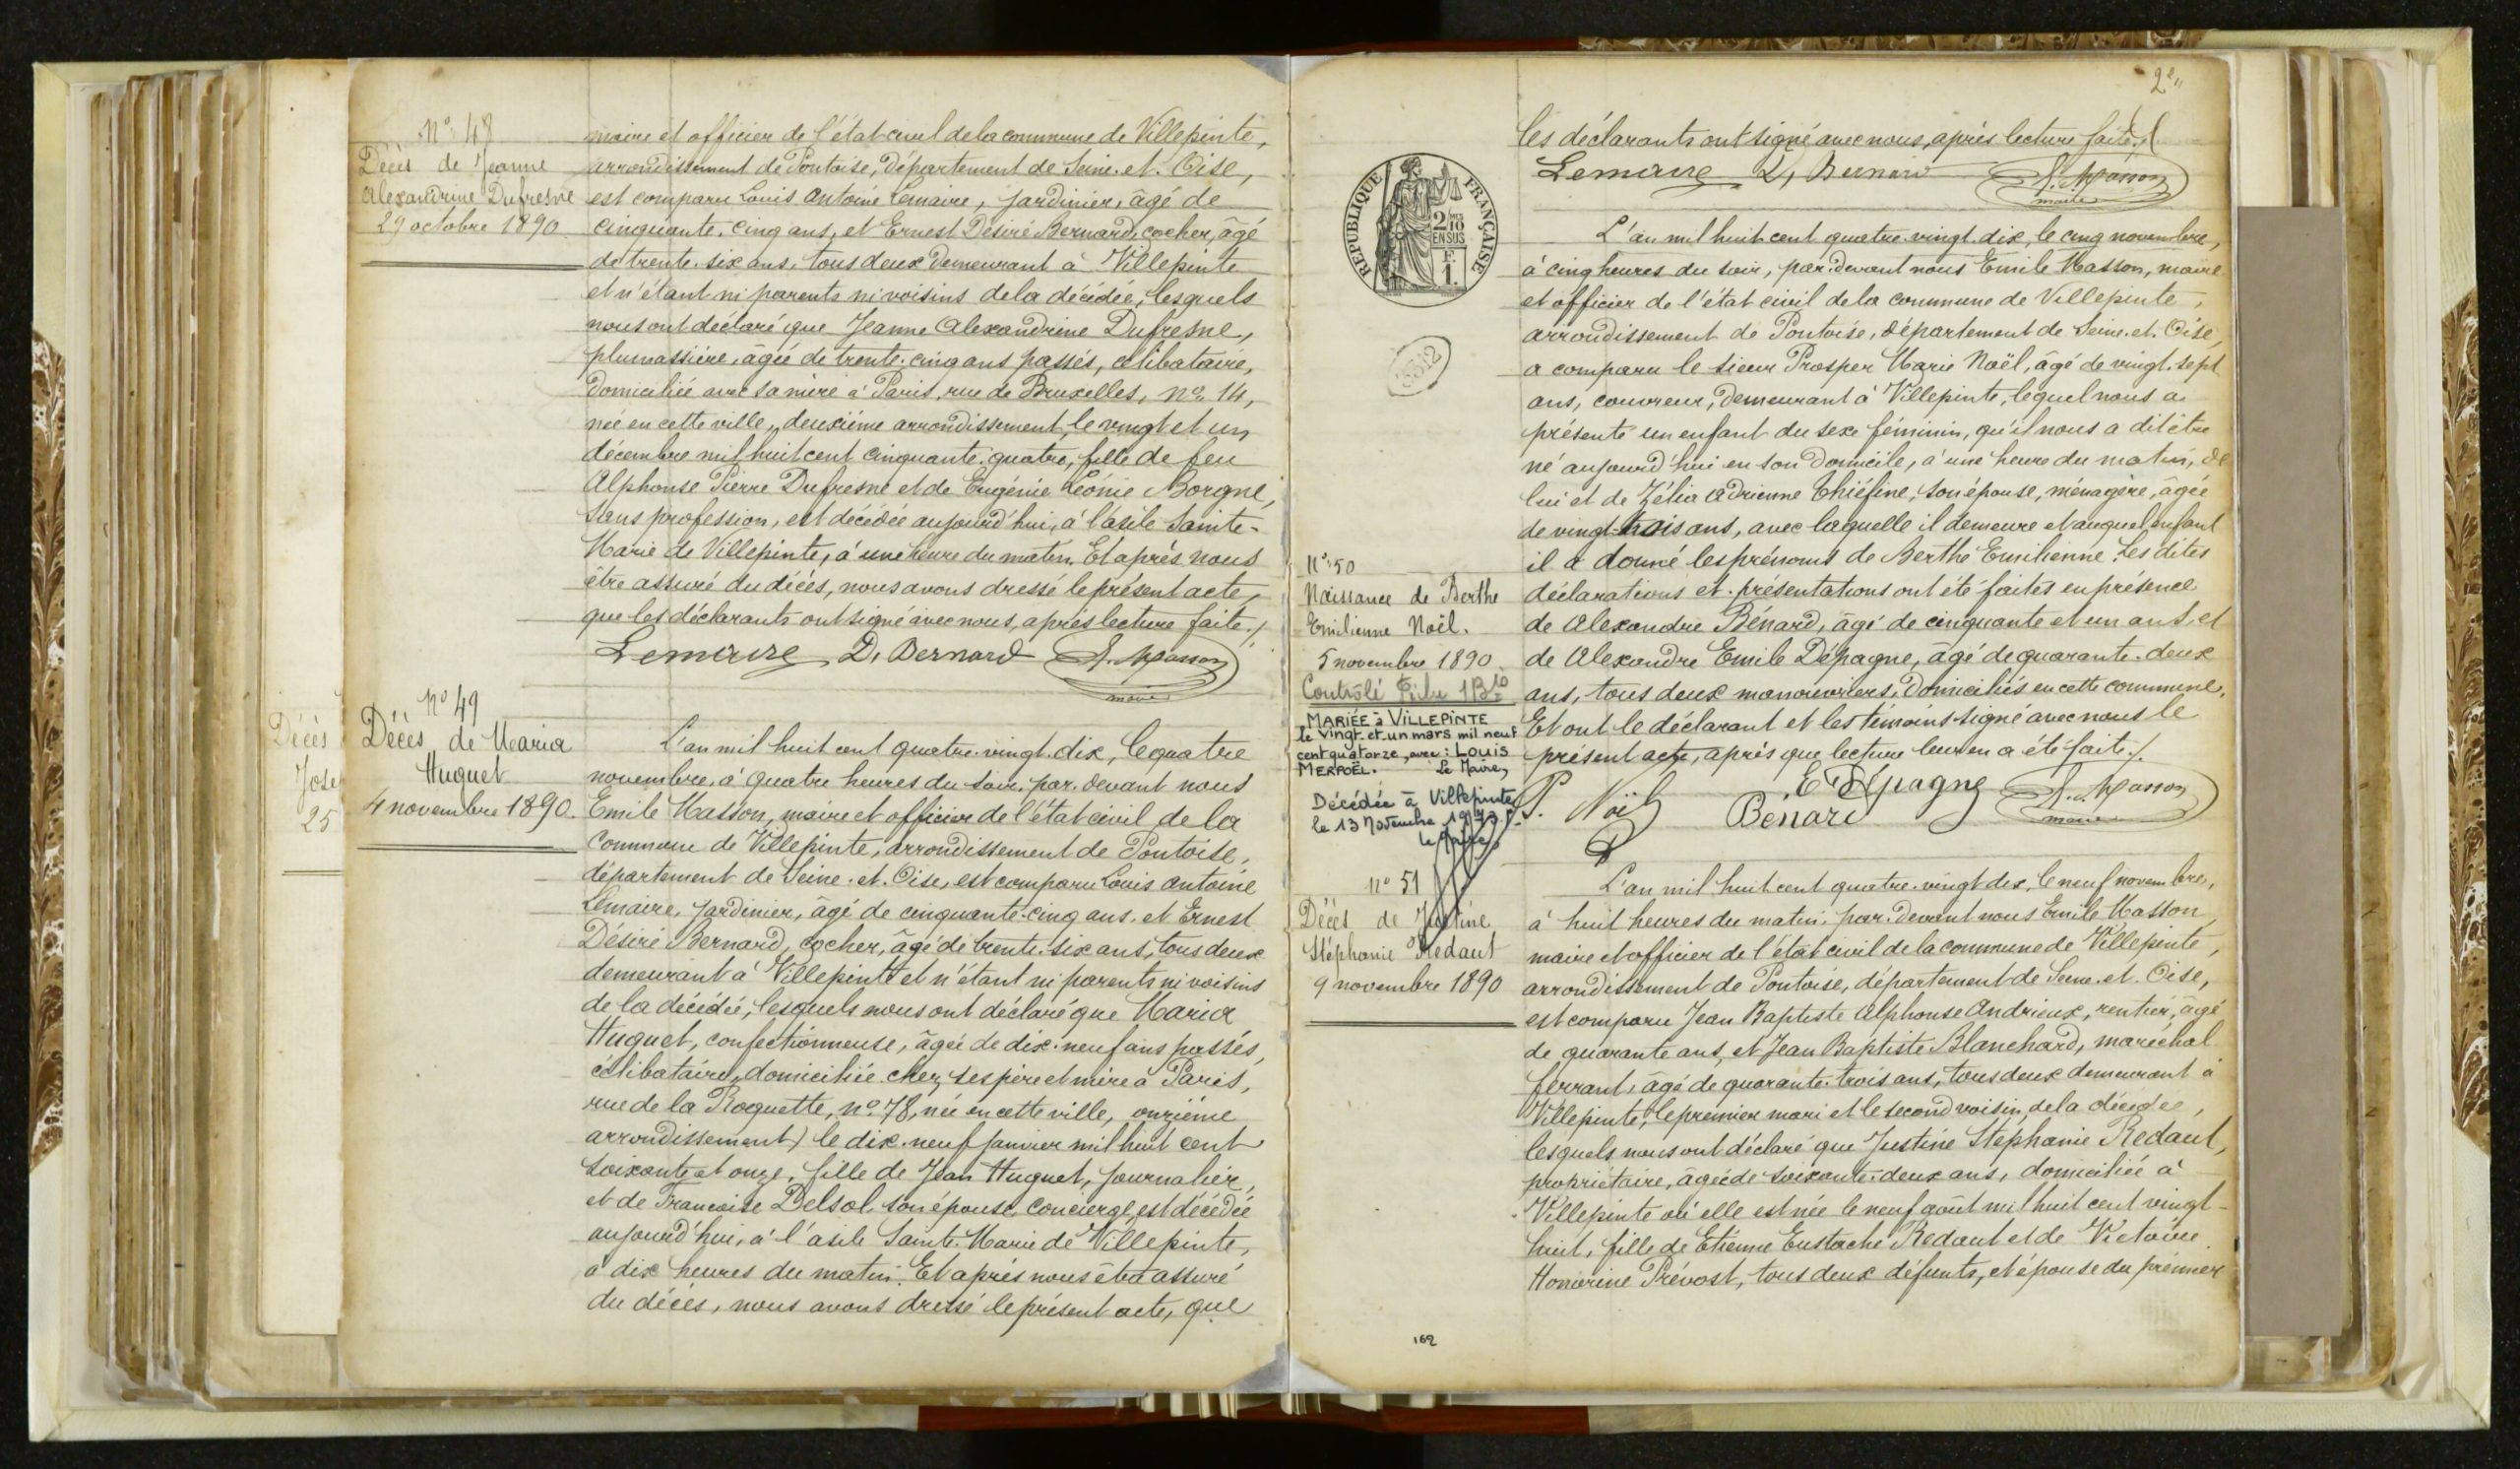 N° 48
Décès de Jeanne
Alexandrine Dufresne
29 octobre 1890
maire et officier de l'état civil de la commune de Villepinte,
arrondissement de Pontoise, département de Seine-et-Oise,
est comparu Louis Antoine Lemaire, jardinier, âgé de
cinquante-cinq ans, et Ernest Désiré Bernard, cocher, âgé
de trente-six ans, tous deux demeurant à Villepinte
et n'étant ni parents ni voisins de la décédée, lesquels
nous ont déclaré que Jeanne Alexandrine Dufresne,
plumassière, âgée de trente-cinq ans passés, célibataire,
domiciliée avec sa mère à Paris, rue de Bruxelles, n° 14,
née en cette ville, deuxième arrondissement, le vingt et un
décembre mil huit cent cinquante-quatre, fille de feu
Alphonse Pierre Dufresne et de Eugénie Léonie Borgne,
sans profession, est décédée aujourd'hui, à l'asile Sainte-
Marie de Villepinte, à une heure du matin. Et après nous
être assuré du décès, nous avons dressé le présent acte,
que les déclarants ont signé avec nous, après lecture faite./
Lemaire D. Bernard E. Masson
maire
N° 49
Décès de Maria
Huguet
4 novembre 1890.
Décès
Jose
25
L'an mil huit cent quatre-vingt-dix, le quatre
novembre, à quatre heures du soir, par-devant nous
Emile Masson, maire et officier de l'état civil de la
commune de Villepinte, arrondissement de Pontoise,
département de Seine-et-Oise, est comparu Louis Antoine
Lemaire, jardinier, âgé de cinquante-cinq ans, et Ernest
Désiré Bernard, cocher, âgé de trente-six ans, tous deux
demeurant à Villepinte et n'étant ni parents ni voisins
de la décédée, lesquels nous ont déclaré que Maria
Huguet, confectionneuse, âgée de dix-neuf ans passés,
célibataire, domiciliée chez ses père et mère à Paris,
rue de la Roquette, n° 78, née en cette ville, onzième
arrondissement) le dix-neuf janvier mil huit cent
soixante et onze, fille de Jean Huguet, journalier,
et de Françoise Delsol, son épouse, concierge, est décédée
aujourd'hui, à l'asile Sainte-Marie de Villepinte,
à dix heures du matin. Et après nous être assuré
du décès, nous avons dressé le présent acte, que
2e
RÉPUBLIQUE FRANÇAISE
2/10 EN SUS
F. 1.
3512
les déclarants ont signé avec nous, après lecture faite./
Lemaire D. Bernard E. Masson
maire
L'an mil huit cent quatre-vingt-dix, le cinq novembre,
à cinq heures du soir, par-devant nous Emile Masson, maire
et officier de l'état civil de la commune de Villepinte,
arrondissement de Pontoise, département de Seine-et-Oise,
a comparu le sieur Prosper Marie Noël, âgé de vingt-sept
ans, couvreur, demeurant à Villepinte, lequel nous a
présenté un enfant du sexe féminin, qu'il nous a dit être
né aujourd'hui en son domicile, à une heure du matin, de
lui et de Zélia Adrienne Thiéfine, son épouse, ménagère, âgée
de vingt-trois ans, avec laquelle il demeure et auquel enfant
il a donné les prénoms de Berthe Emilienne. Les dites
déclarations et présentations ont été faites en présence
de Alexandre Bénard, âgé de cinquante et un ans, et
de Alexandre Emile Dépagne, âgé de quarante-deux
ans, tous deux manouvriers, domiciliés en cette commune.
Et ont le déclarant et les témoins signé avec nous le
présent acte, après que lecture leur en a été faite./
P. Noël Bénard E Dépagne E. Masson
maire
N° 50
Naissance de Berthe
Emilienne Noël.
5 novembre 1890.
Contrôlé
MARIÉE à VILLEPINTE
le vingt-et-un mars mil neuf
cent quatorze, avec : LOUIS
MERPOËL. Le Maire,
Décédée à Villepinte
le 13 Novembre
le Maire
N° 51
Décès de Justine
Stéphanie Redaut
9 novembre 1890
L'an mil huit cent quatre-vingt-dix, le neuf novembre,
à huit heures du matin, par-devant nous Emile Masson,
maire et officier de l'état civil de la commune de Villepinte,
arrondissement de Pontoise, département de Seine-et-Oise,
est comparu Jean Baptiste Alphonse Andrieux, rentier, âgé
de quarante ans, et Jean Baptiste Blanchard, maréchal
ferrant, âgé de quarante-trois ans, tous deux demeurant à
Villepinte, le premier mari et le second voisin de la décédée,
lesquels nous ont déclaré que Justine Stéphanie Redaut,
propriétaire, âgée de soixante-deux ans, domiciliée à
Villepinte où elle est née le neuf août mil huit cent vingt-
huit, fille de Etienne Eustache Redaut et de Victoire
Honorine Prévost, tous deux défunts, et épouse du premier
162